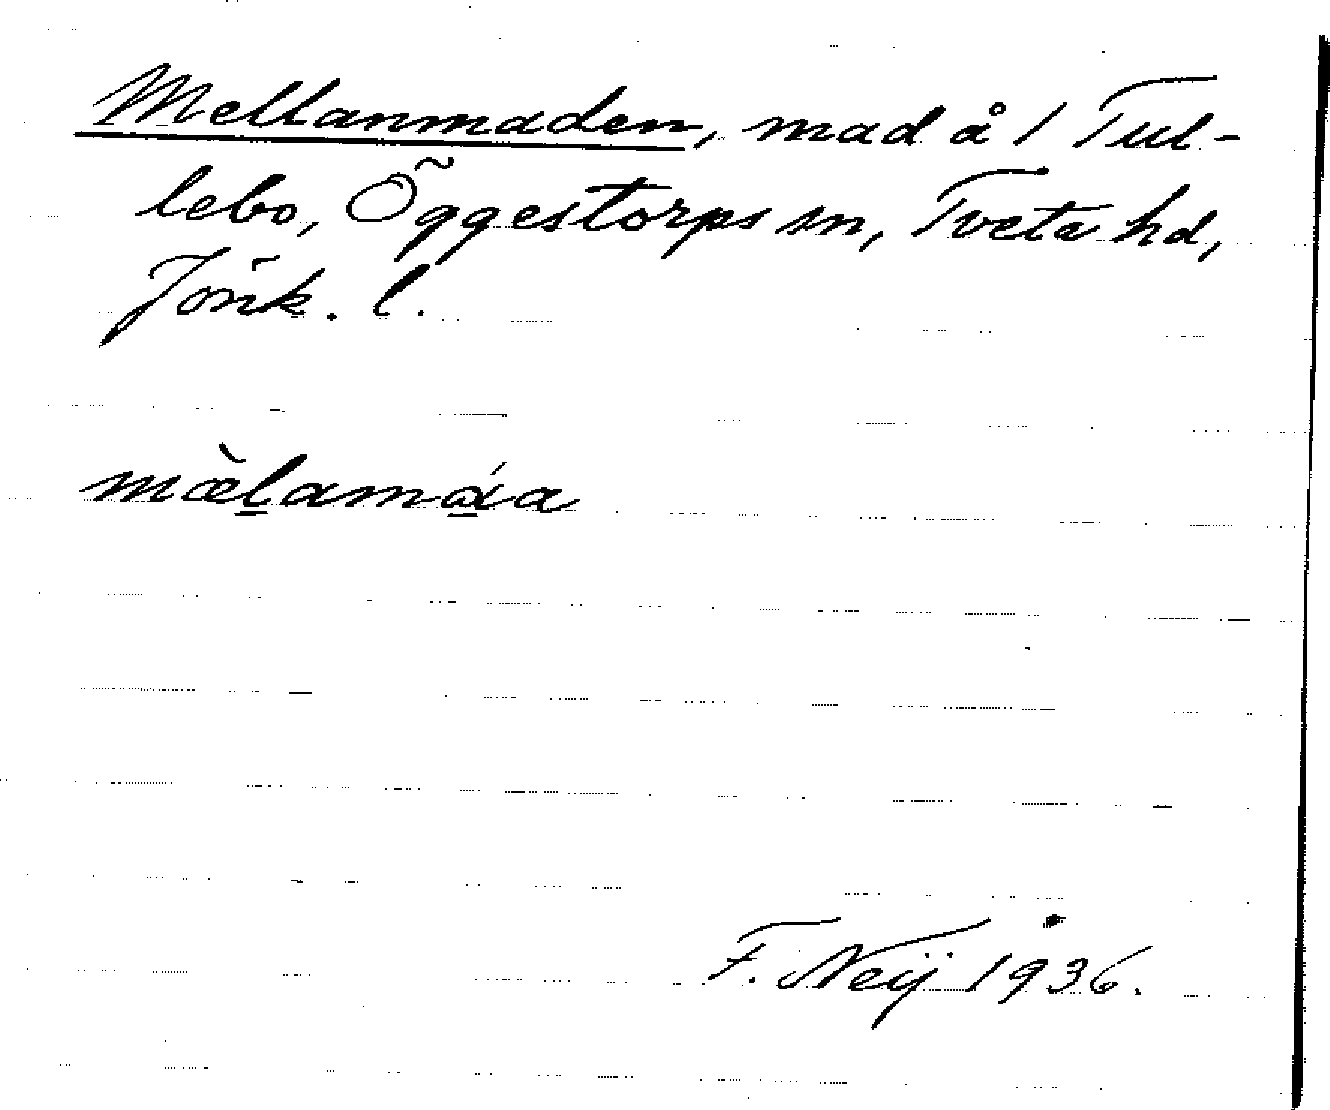 Mellanmaden, mad å 1 Tul-
lebo, Öggestorps sn, Tveta hd,
Jönk. l.
mæ̀l̲amɑ̲́a
F. Neij 1936.